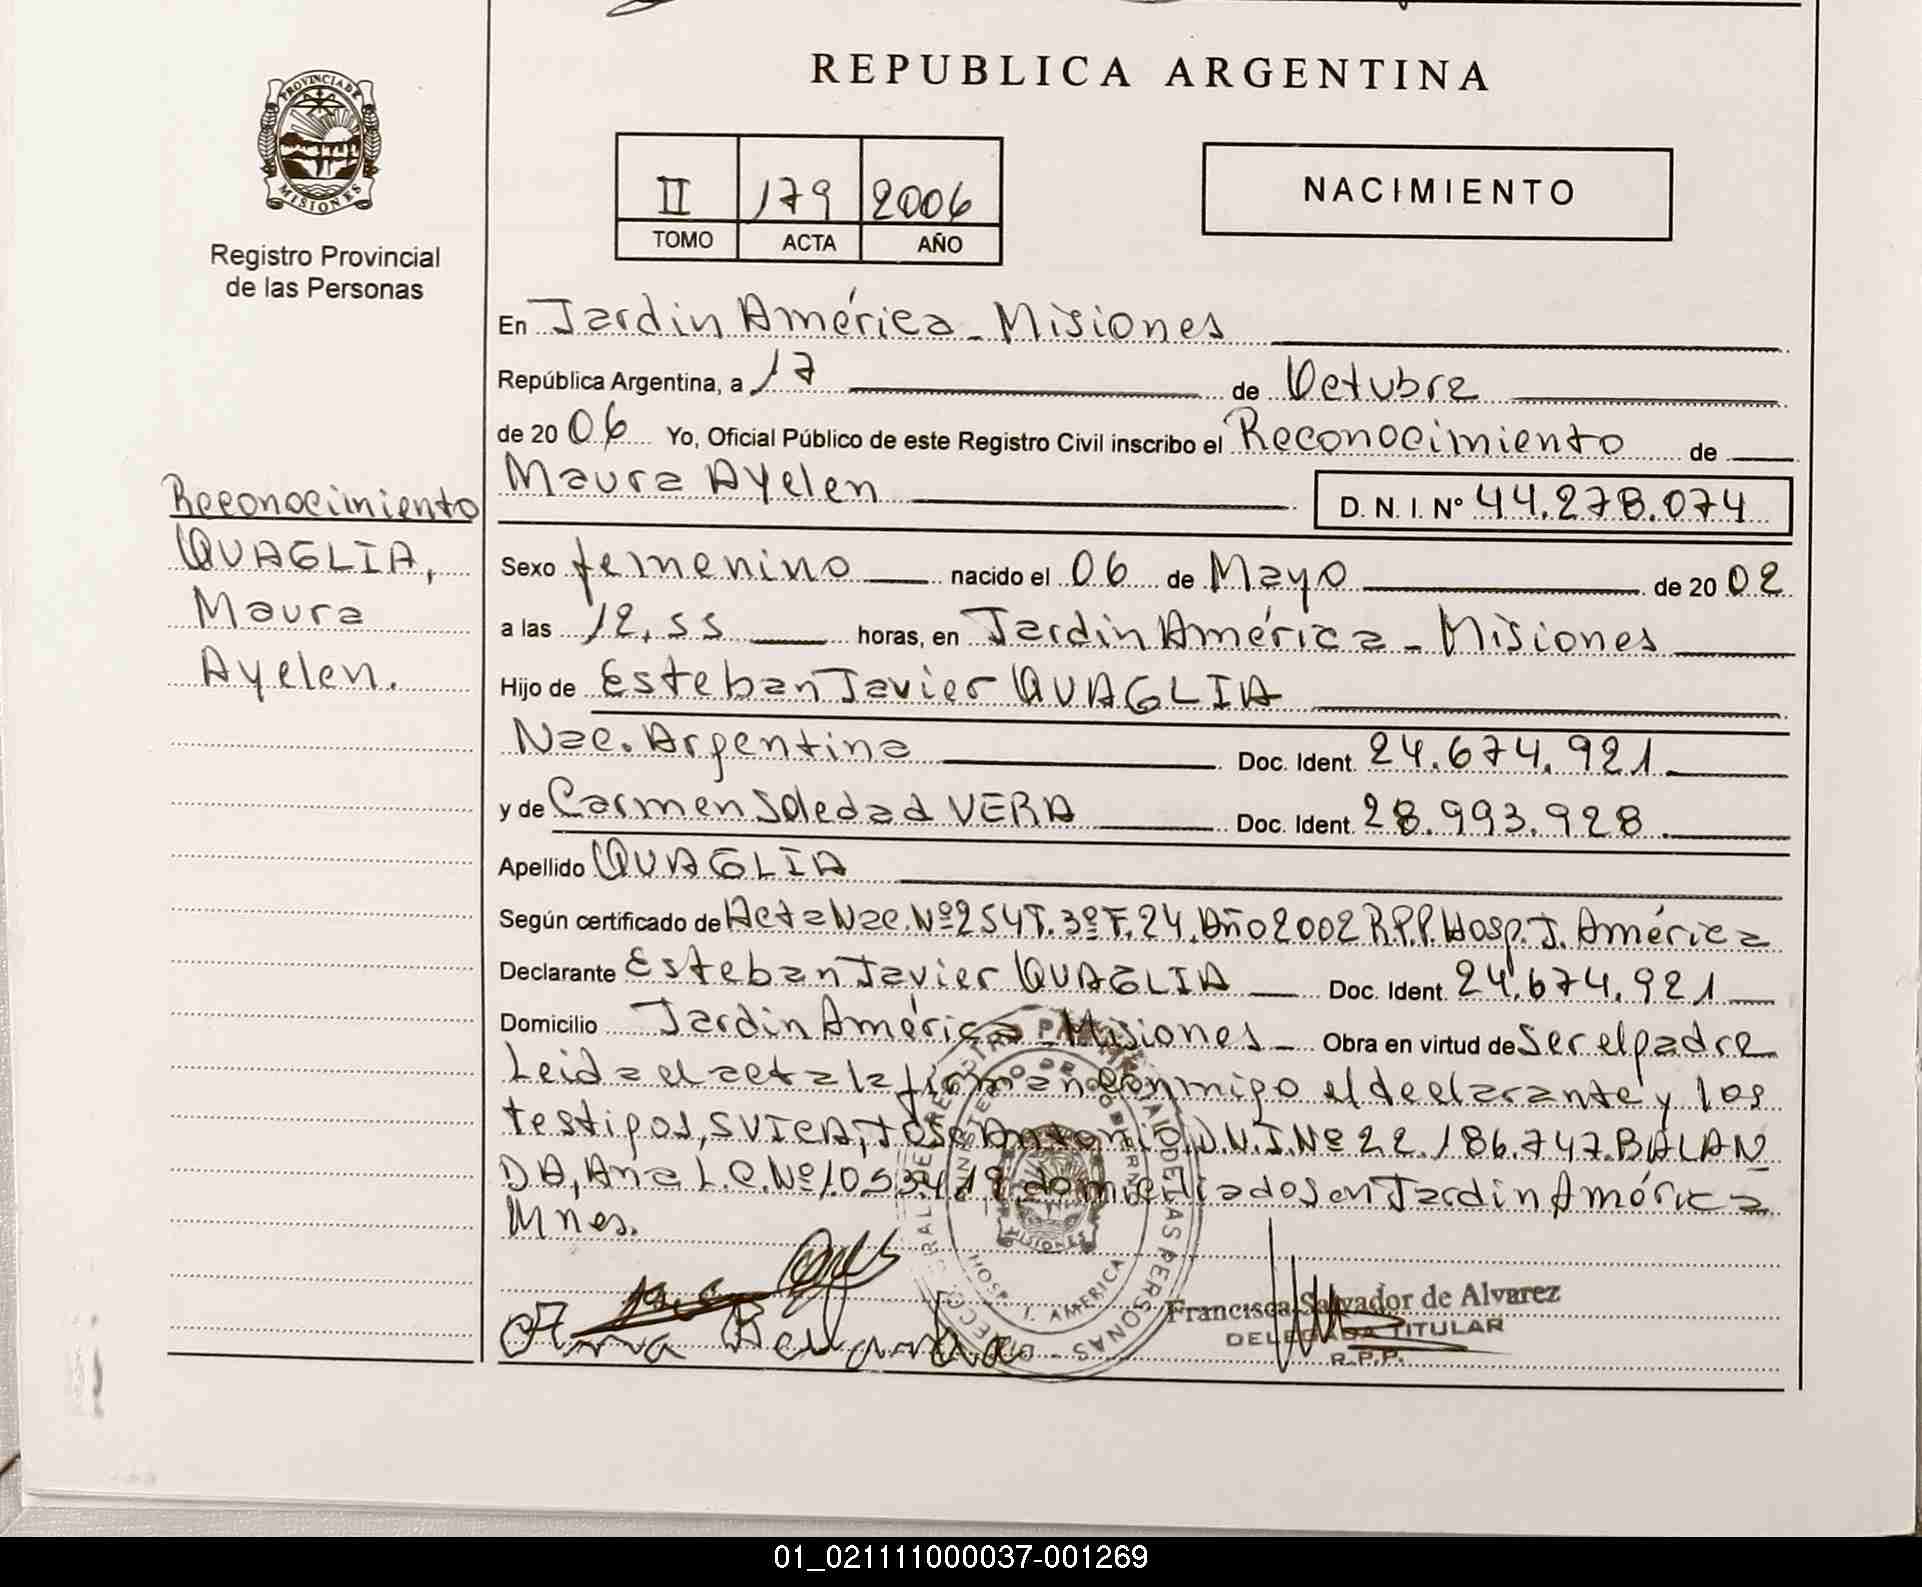 REPUBLICA ARGENTINA
PROVINCIA DE MISIONES
Registro Provincial
de las Personas
II 179 2006
TOMO ACTA AÑO
NACIMIENTO
En Jardin América - Misiones
República Argentina, a 17 de Octubre
de 2006 Yo, Oficial Público de este Registro Civil inscribo el Reconocimiento de
Maura Ayelen D. N. I. Nº 44.278.074
Reconocimiento
QUAGLIA,
Maura
Ayelen.
Sexo femenino nacido el 06 de Mayo de 2002
a las 12,55 horas, en Jardin América - Misiones
Hijo de Esteban Javier QUAGLIA
Nac. Argentina Doc. Ident. 24.674.921
y de Carmen Soledad VERA Doc. Ident. 28.993.928
Apellido QUAGLIA
Según certificado de Acta Nac. Nº 254 T. 3º F. 24. Año 2002 R.P.P. Hosp. J. América
Declarante Esteban Javier QUAGLIA Doc. Ident. 24.674.921
Domicilio Jardin América - Misiones - Obra en virtud de Ser el padre
Leida el acta la firman conmigo el declarante y los
testigos, SVICA, José Antonio D.N.I. Nº 22.186.747. BALAN
DA, Ana L.C. Nº domiciliados en Jardin América
Mnes.
MINISTERIO DE GOBIERNO
MISIONES
HOSP. J. AMERICA
Ana Belanda
Francisca Salvador de Alvarez
DELEGADA TITULAR
R.P.P.
01_021111000037-001269